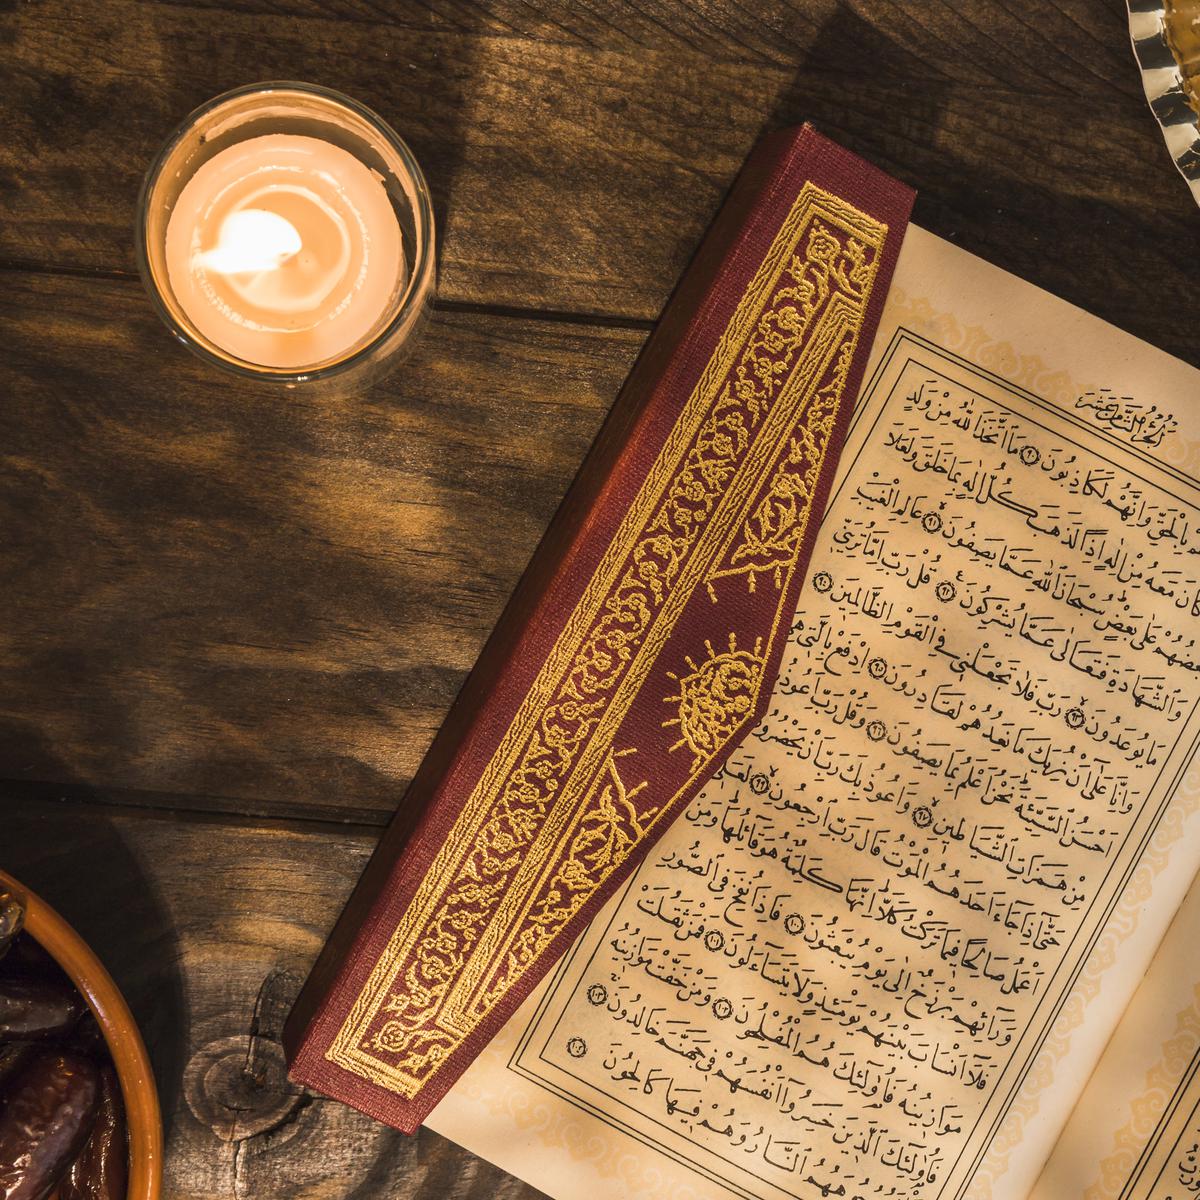 الجُزْءُ الثَّامِنُ عَشَرَ
بِالْحَقِّ وَاِنَّهُمْ لَكَاذِبُونَ ﴿٩٠﴾ مَا اتَّخَذَ اللّٰهُ مِنْ وَلَدٍ
كَانَ مَعَهُ مِنْ اِلٰهٍ اِذًا لَذَهَبَ كُلُّ اِلٰهٍ بِمَا خَلَقَ وَلَعَلَا
بَعْضُهُمْ عَلٰى بَعْضٍ سُبْحَانَ اللّٰهِ عَمَّا يَصِفُونَ ﴿٩١﴾ عَالِمِ الْغَيْبِ
وَالشَّهَادَةِ فَتَعَالٰى عَمَّا يُشْرِكُونَ ﴿٩٢﴾ قُلْ رَبِّ اِمَّا تُرِيَنّ۪ي
مَا يُوعَدُونَ ﴿٩٣﴾ رَبِّ فَلَا تَجْعَلْن۪ي فِي الْقَوْمِ الظَّالِم۪ينَ ﴿٩٤﴾
وَاِنَّا عَلٰٓى اَنْ نُرِيَكَ مَا نَعِدُهُمْ لَقَادِرُونَ ﴿٩٥﴾ اِدْفَعْ بِالَّت۪ي هِيَ
اَحْسَنُ السَّيِّئَةَ نَحْنُ اَعْلَمُ بِمَا يَصِفُونَ ﴿٩٦﴾ وَقُلْ رَبِّ اَعُوذُ
مِنْ هَمَزَاتِ الشَّيَاط۪ينِ ﴿٩٧﴾ وَاَعُوذُ بِكَ رَبِّ اَنْ يَحْضُرُونِ
حَتّٰٓى اِذَا جَٓاءَ اَحَدَهُمُ الْمَوْتُ قَالَ رَبِّ ارْجِعُونِ ﴿٩٩﴾ لَعَلّ۪ٓي
اَعْمَلُ صَالِحًا ف۪يمَا تَرَكْتُ كَلَّا اِنَّهَا كَلِمَةٌ هُوَ قَٓائِلُهَا وَمِنْ
وَرَٓائِهِمْ بَرْزَخٌ اِلٰى يَوْمِ يُبْعَثُونَ ﴿١٠٠﴾ فَاِذَا نُفِخَ فِي الصُّورِ
فَلَٓا اَنْسَابَ بَيْنَهُمْ يَوْمَئِذٍ وَلَا يَتَسَٓاءَلُونَ ﴿١٠١﴾ فَمَنْ ثَقُلَتْ
مَوَاز۪ينُهُ فَاُو۬لٰٓئِكَ هُمُ الْمُفْلِحُونَ ﴿١٠٢﴾ وَمَنْ خَفَّتْ مَوَاز۪ينُهُ
فَاُو۬لٰٓئِكَ الَّذ۪ينَ خَسِرُٓوا اَنْفُسَهُمْ ف۪ي جَهَنَّمَ خَالِدُونَ ﴿١٠٣﴾
النَّارُ وَهُمْ ف۪يهَا كَالِحُونَ ﴿١٠٤﴾